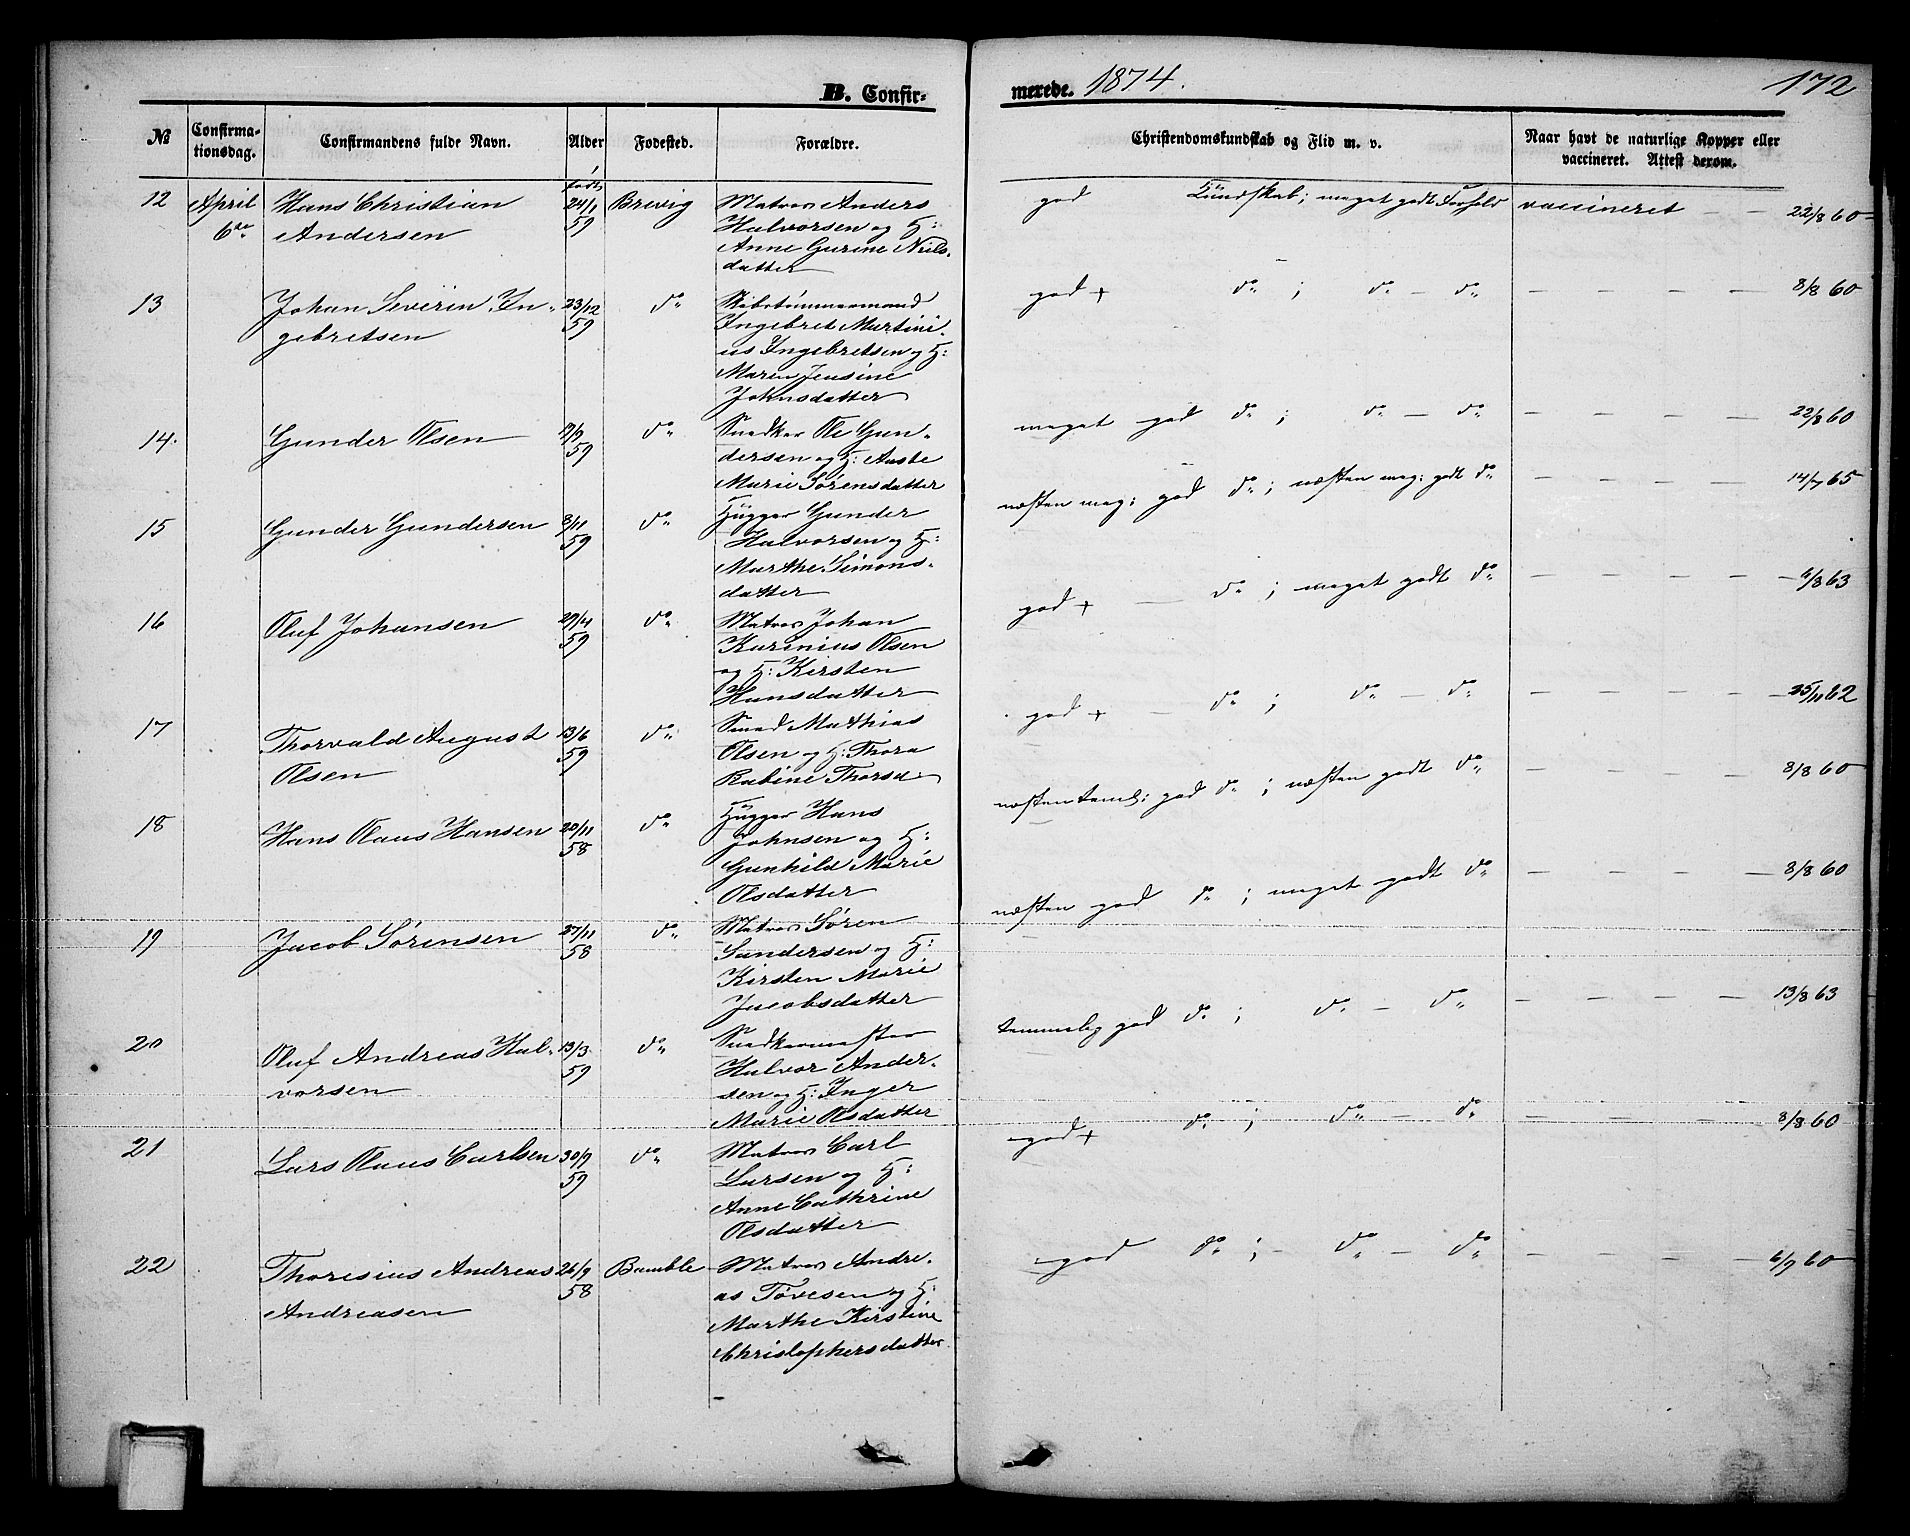 B. Confir-
merede. 1874.
172
№
Confirma-
tionsdag.
Confirmandens fulde Navn.
Alder
Fødested.
Forældre.
Christendomskundskab og Flid m. v.
Naar havt de naturlige Kopper eller
vaccineret. Attest derom.
født
12 April Hans Christian 24/1 Brevig Matros Anders
6te Andersen 59 Halvorsen og H:
Anne Gurine Niels-
datter
god Kundskab; meget godt Forhold vaccineret — — 22/8 60
13 Johan Severin In- 23/12 do Skibstømmermand
gebretsen 59 Ingebret Martini-
us Ingebretsen og H:
Maren Jensine
Johnsdatter
god + do ; do — do — — — — 8/8 60
14. Gunder Olsen 59 do Snedker Ole Gun-
dersen og H: Aaste
Marie Sørensdatter
meget god do ; do — do — — — — 22/8 60
15 Gunder Gundersen 3/11 do Hugger Gunder
59 Halvorsen og H:
Marthe Simons-
datter
næsten meg: god do ; næsten meg: godt do — — — — 14/7 65
16 Oluf Johansen 29/4 do Matros Johan
59 Karinius Olsen
og H: Kirsten
Hansdatter
god + — do ; meget godt do — — — — 6/8 63
17 Thorvald August 13/6 do Smed Mathias
Olsen 59 Olsen og H: Thora
Rabine Thorsd:
god + — do ; do — do — — — — 25/11 62
18 Hans Olaus Hansen 20/11 do Hugger Hans
58 Johnsen og H:
Gunhild Marie
Olsdatter
næsten teml: god do ; næsten godt do — — — — 8/8 60
19 Jacob Sørensen 27/11 do Matros Søren
58 Gundersen og H:
Kirsten Marie
Jacobsdatter
næsten god do ; meget godt do — — — — 8/8 60
20 Oluf Andreas Hal- 13/3 do Snedkermester
vorsen 59 Halvor Ander-
sen og H: Inger
Marie Olsdatter
temmelig god do ; do — do — — — — 13/8 63
21 Lars Olaus Carlsen 30/9 do Matros Carl
59 Larsen og H:
Anne Cathrine
Olsdatter
god + do ; do — do — — — — 8/8 60
22 Thoresius Andreas 26/9 Bamble Matros Andre-
Andreasen 58 as Tovesen og H:
Marthe Kirstine
Christophersdatter
god do ; — do — do — — — — 6/9 60